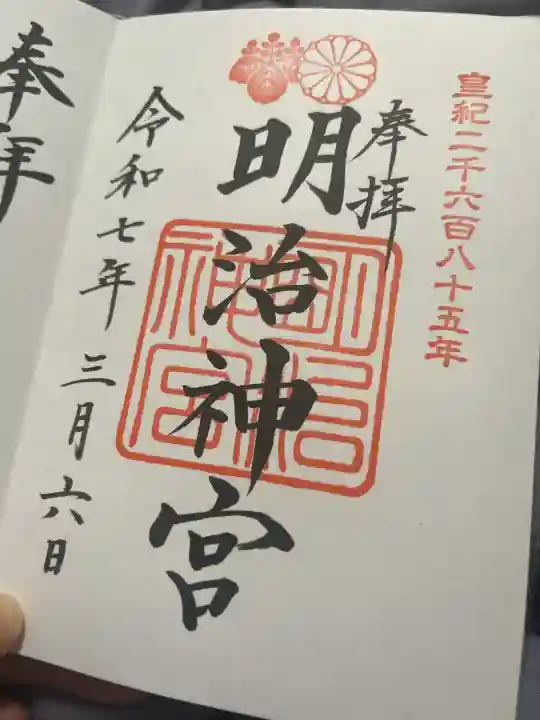 皇紀二千六百八十五年
奉拝
明治神宮
明治神宮
令和七年 三月六日
奉拝